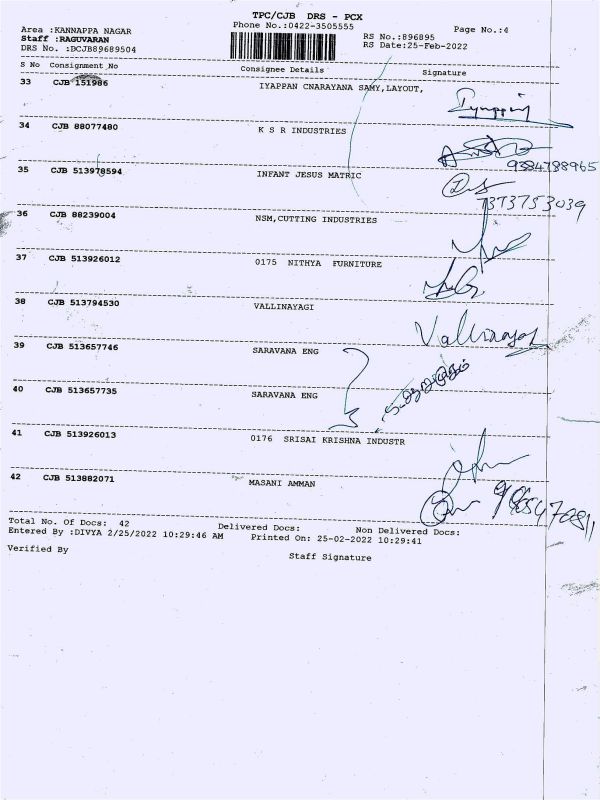 TPC/CJB DRS - PCX
Area :KANNAPPA NAGAR Phone No.:0422-3505555 Page No.:4
Staff :RAGUVARAN RS No.:896895
DRS No. :DCJB89689504 RS Date:25-Feb-2022
S No Consignment No Consignee Details Signature
33 CJB 151986 IYAPPAN CNARAYANA SAMY,LAYOUT,
34 CJB 88077480 K S R INDUSTRIES
9384788965
35 CJB 513978594 INFANT JESUS MATRIC
7373753039
36 CJB 88239004 NSM,CUTTING INDUSTRIES
37 CJB 513926012 0175 NITHYA FURNITURE
38 CJB 513794530 VALLINAYAGI
39 CJB 513657746 SARAVANA ENG
40 CJB 513657735 SARAVANA ENG
41 CJB 513926013 0176 SRISAI KRISHNA INDUSTR
42 CJB 513882071 MASANI AMMAN
Total No. Of Docs: 42 Delivered Docs: Non Delivered Docs:
Entered By :DIVYA 2/25/2022 10:29:46 AM Printed On: 25-02-2022 10:29:41
Verified By Staff Signature